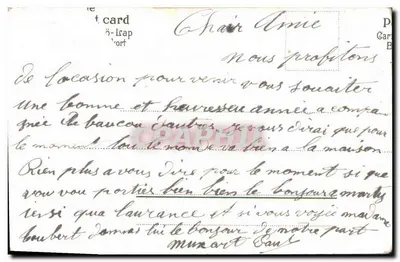 t card
Chair Amie
P
Car
nous profitons
de locasion pour venir vous souaiter
une bonne et heureuse année acompa
gnée de baucou dautres je vous dirai que pour
le moment tou le monde va bien a la maison
Rien plus a vous dire pour le moment si que
vou vou portier bien bien le bonjour a
insi qua laurance et si vous voyié madame
boubert donné lui le bonjour de notre part
Paul